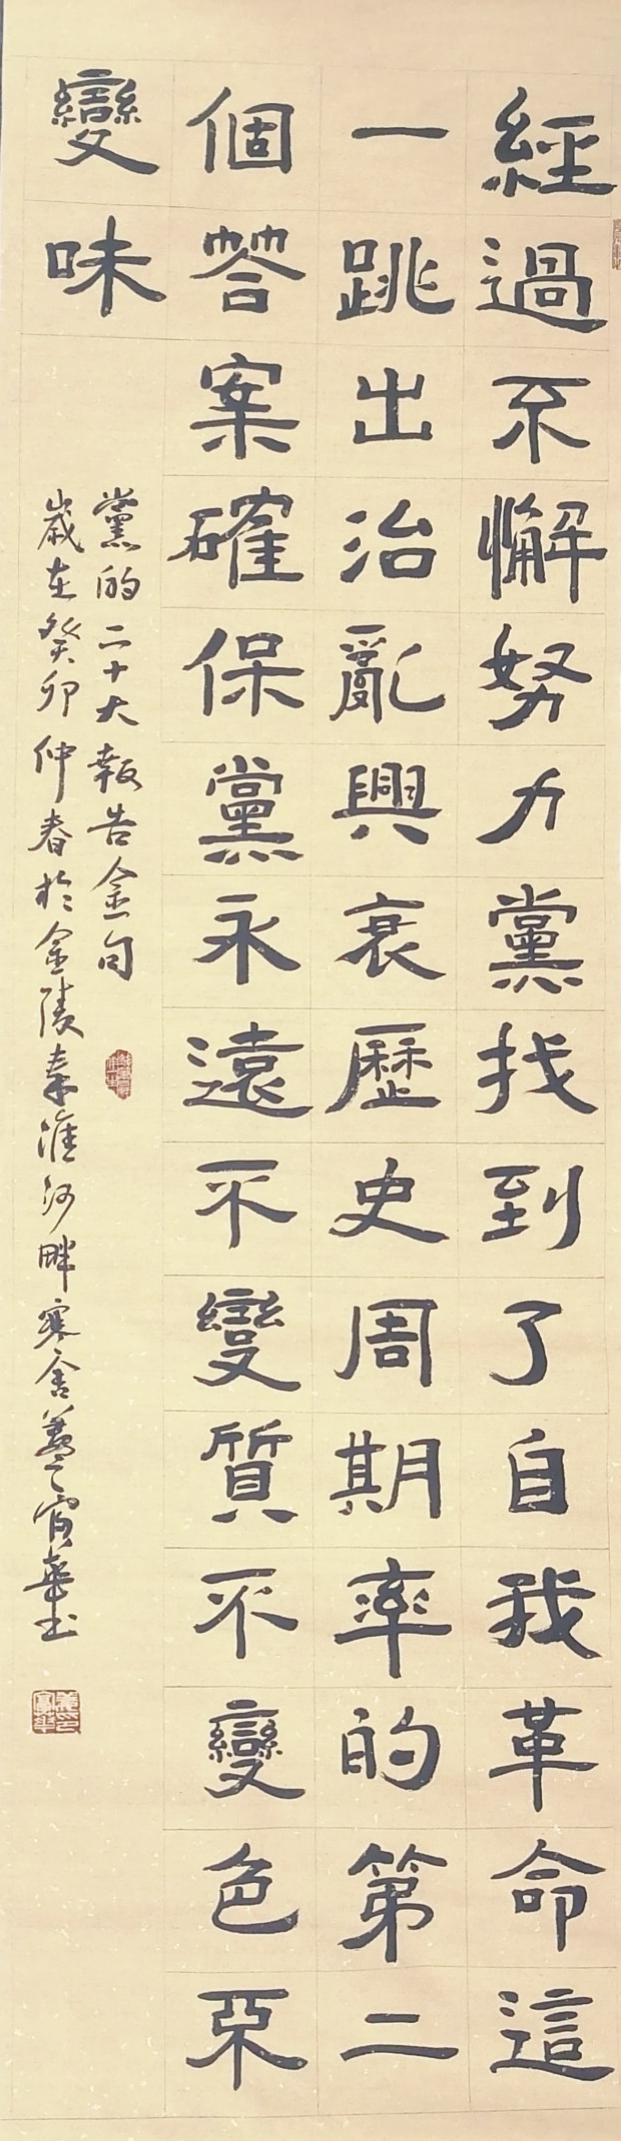 經過不懈努力黨找到了自我革命這
一跳出治亂興衰歷史周期率的第二
個答案確保黨永遠不變質不變色不
變味
黨的二十大報告金句
歲在癸卯仲春於金陵秦淮河畔寒舍